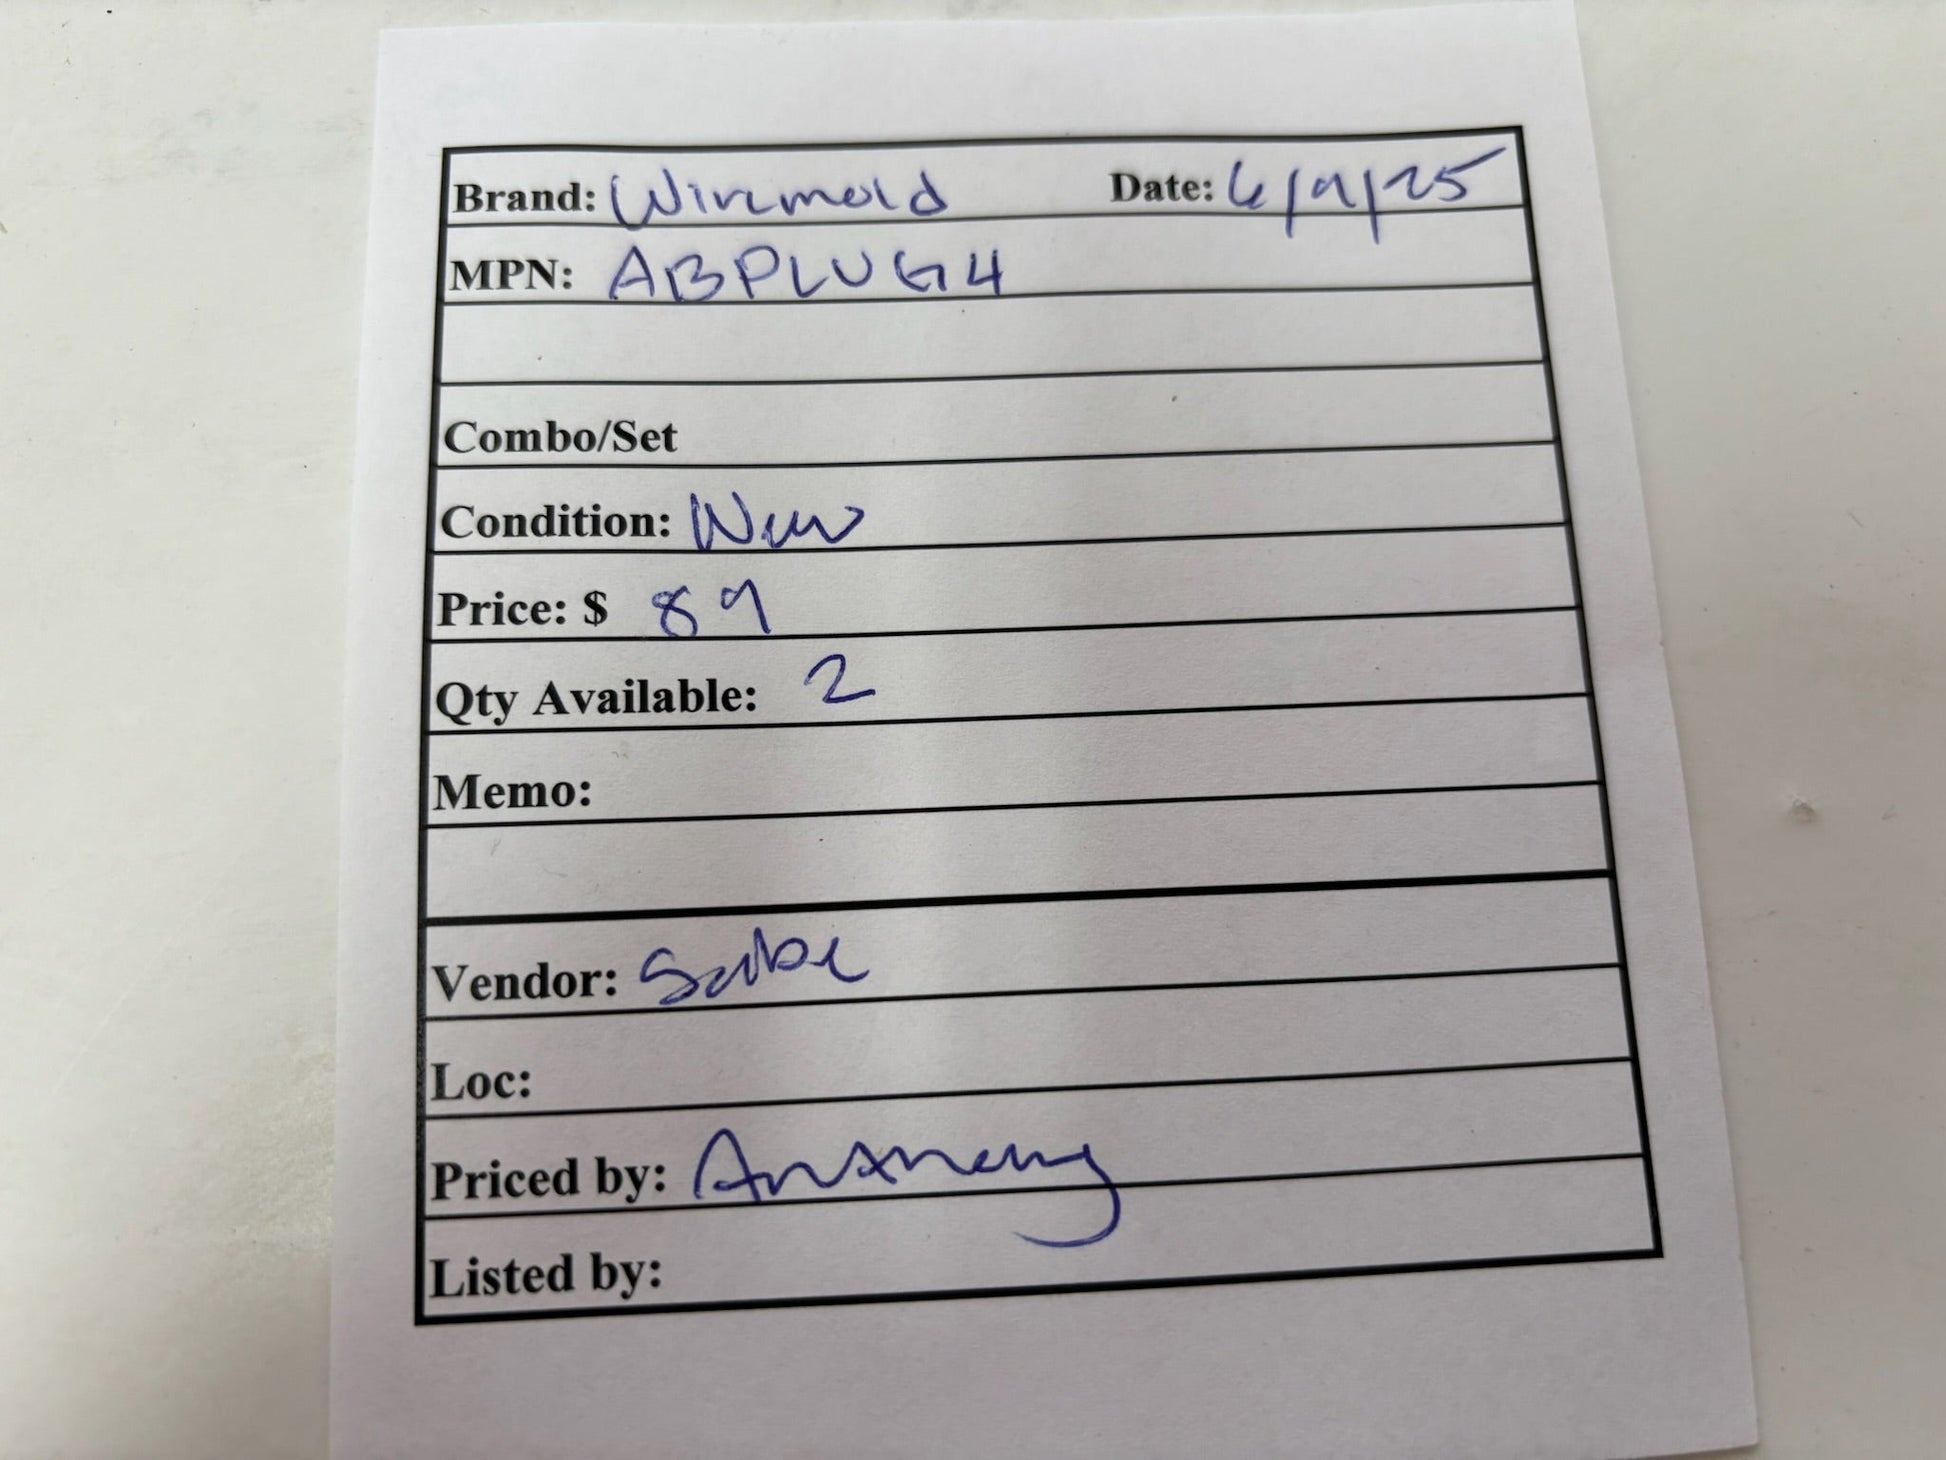 Brand: Wiremold Date: 6/9/25
MPN: ABPLUG4
Combo/Set
Condition: New
Price: $ 89
Qty Available: 2
Memo:
Vendor:
Loc:
Priced by: Anthony
Listed by: